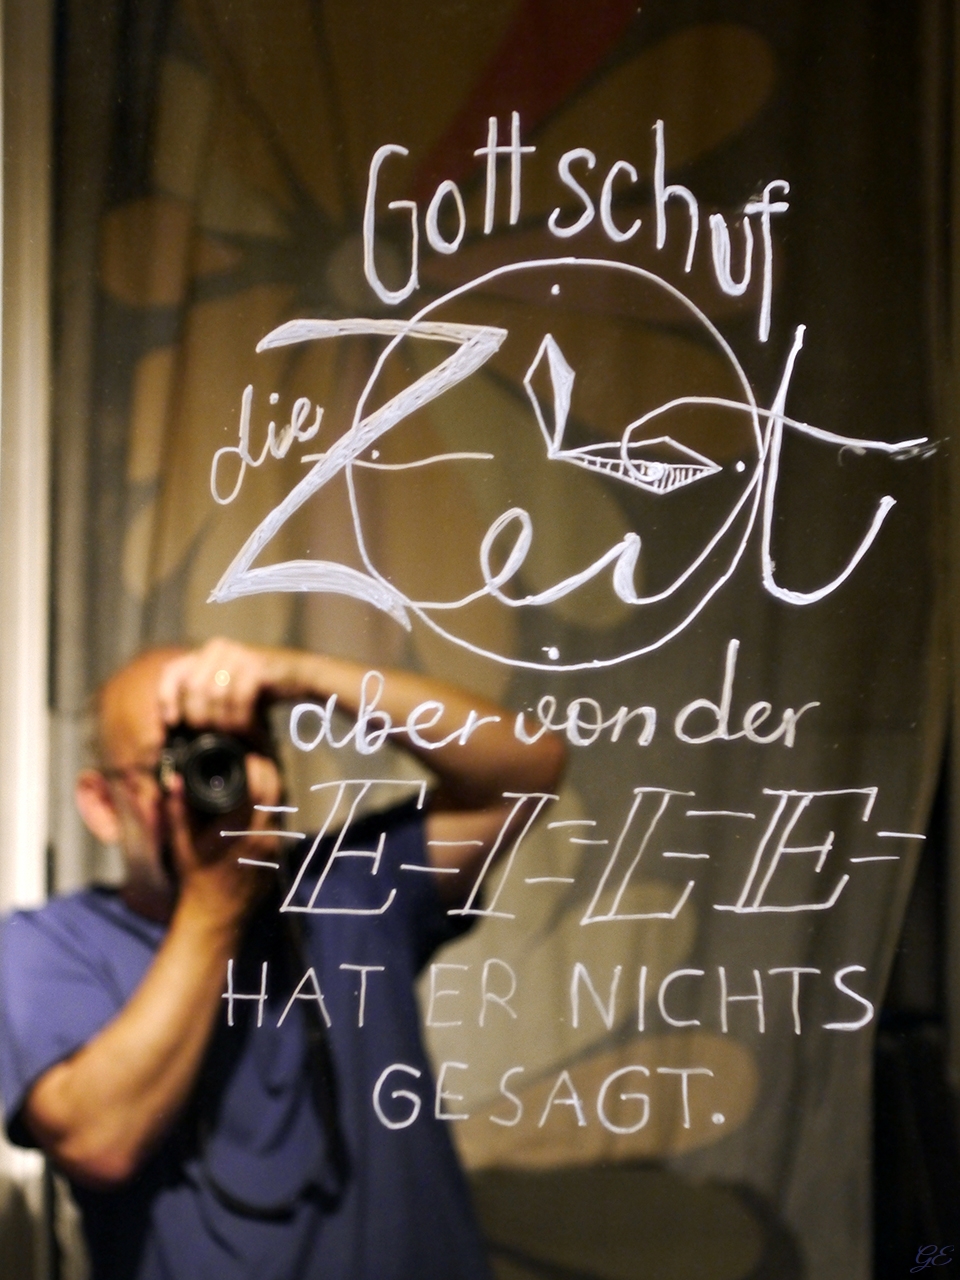 Gott schuf
die Zeit
aber von der
EILE
HAT ER NICHTS
GESAGT.
GE